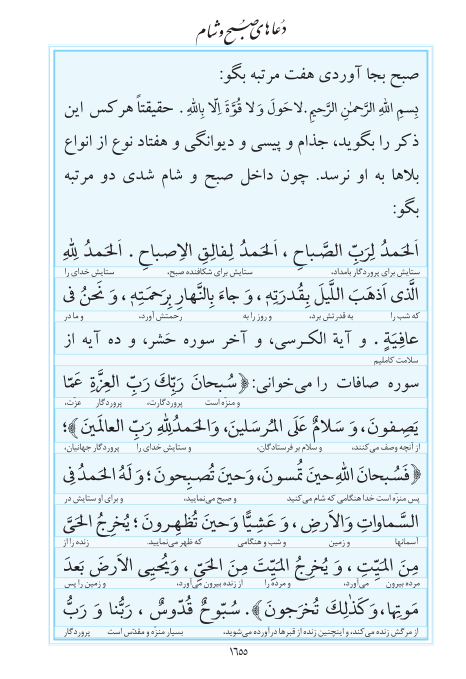 دُعاهای صبح و شام
صبح بجا آوردی هفت مرتبه بگو:
بِسمِ اللهِ الرَّحمٰنِ الرَّحیمِ. لاحَولَ وَ لا قُوَّةَ اِلّا بِاللهِ . حقیقتاً هرکس این
ذکر را بگوید، جذام و پیسی و دیوانگی و هفتاد نوع از انواع
بلاها به او نرسد. چون داخل صبح و شام شدی دو مرتبه
بگو:
اَلحَمدُ لِرَبِّ الصَّباحِ ، اَلحَمدُ لِفالِقِ الاِصباحِ . اَلحَمدُ لِلّٰهِ
ستایش برای پروردگار بامداد، ستایش برای شکافنده صبح، ستایش خدای را
الَّذی اَذهَبَ اللَّیلَ بِقُدرَتِهِ ، وَ جاءَ بِالنَّهارِ بِرَحمَتِهِ ، وَ نَحنُ فی
که شب را به قدرتش برد، و روز را به رحمتش آورد، و ما در
عافِیَةٍ . و آیة الکرسی، و آخر سوره حَشر، و ده آیه از
سلامت کاملیم
سوره صافات را می‌خوانی: ﴿سُبحانَ رَبِّكَ رَبِّ العِزَّةِ عَمّا
و منزّه است پروردگارت، پروردگار عزّت،
یَصِفونَ، وَ سَلامٌ عَلَی المُرسَلینَ، وَالحَمدُلِلّٰهِ رَبِّ العالَمینَ﴾؛
از آنچه وصف می‌کنند، و سلام بر فرستادگان، و ستایش خدای را پروردگار جهانیان،
﴿فَسُبحانَ اللهِ حینَ تُمسونَ، وَحینَ تُصبِحونَ ؛ وَ لَهُ الحَمدُ فِی
پس منزّه است خدا هنگامی که شام می‌کنید و صبح می‌نمایید، و برای او ستایش در
السَّماواتِ وَالاَرضِ ، وَ عَشِیًّا وَحینَ تُظهِرونَ ؛ یُخرِجُ الحَیَّ
آسمانها و زمین و شب و هنگامی که ظهر می‌نمایید. زنده را از
مِنَ المَیِّتِ ، وَ یُخرِجُ المَیِّتَ مِنَ الحَیِّ ، وَیُحیِی الاَرضَ بَعدَ
مرده بیرون می‌آورد، و مرده را از زنده بیرون می‌آورد، و زمین را پس
مَوتِها، وَکَذٰلِكَ تُخرَجونَ﴾. سُبّوحٌ قُدّوسٌ ، رَبُّنا وَ رَبُّ
از مرگش زنده می‌کند، و اینچنین زنده از قبرها درآورده می‌شوید، بسیار منزّه و مقدّس است پروردگار
۱۶۵۵